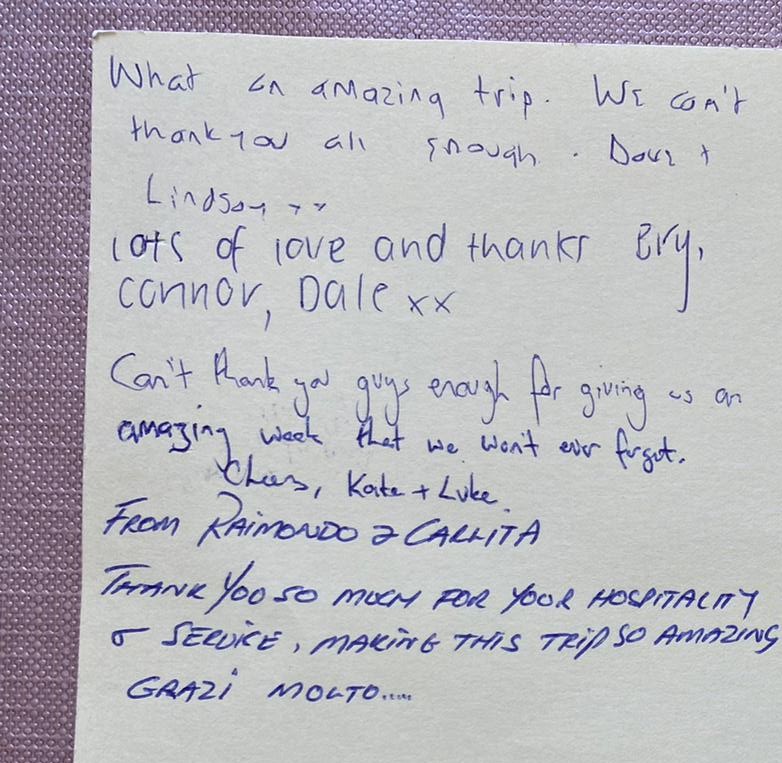 What an amazing trip. We can't
thank you all enough. Dave +
Lindsay xx
lots of love and thanks Bry,
connor, Dale xx
Can't thank you guys enough for giving us an
amazing week that we won't ever forget.
Cheers, Kate + Luke.
FROM RAIMONDO & CARLITA
THANK YOU SO MUCH FOR YOUR HOSPITALITY
& SERVICE, MAKING THIS TRIP SO AMAZING
GRAZI MOLTO.....